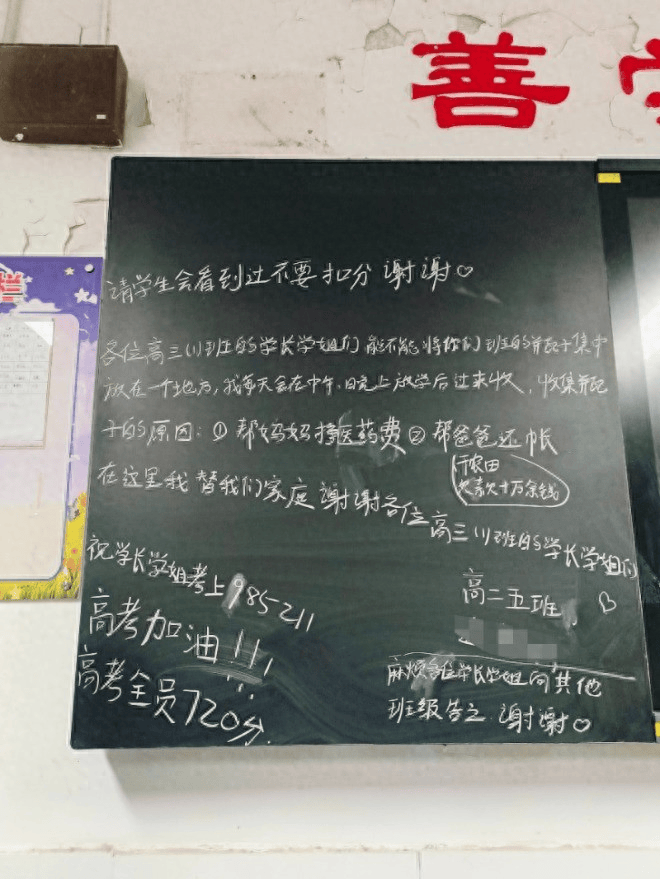 善学
栏
请学生会看到过不要扣分 谢谢♡
各位高三(1)班的学长学姐们能不能将你们班的瓶子集中
放在一个地方,我每天会在中午、晚上放学后过来收,收集瓶
子的原因:①帮妈妈挣医药费②帮爸爸还帐
欠款十万余钱
在这里我替我们家庭谢谢各位高三(1)班的学长学姐们
祝学长学姐考上985211
高考加油!!!
高考全员720分.
高二五班,
麻烦各位学长学姐向其他
班级报告之 谢谢♡